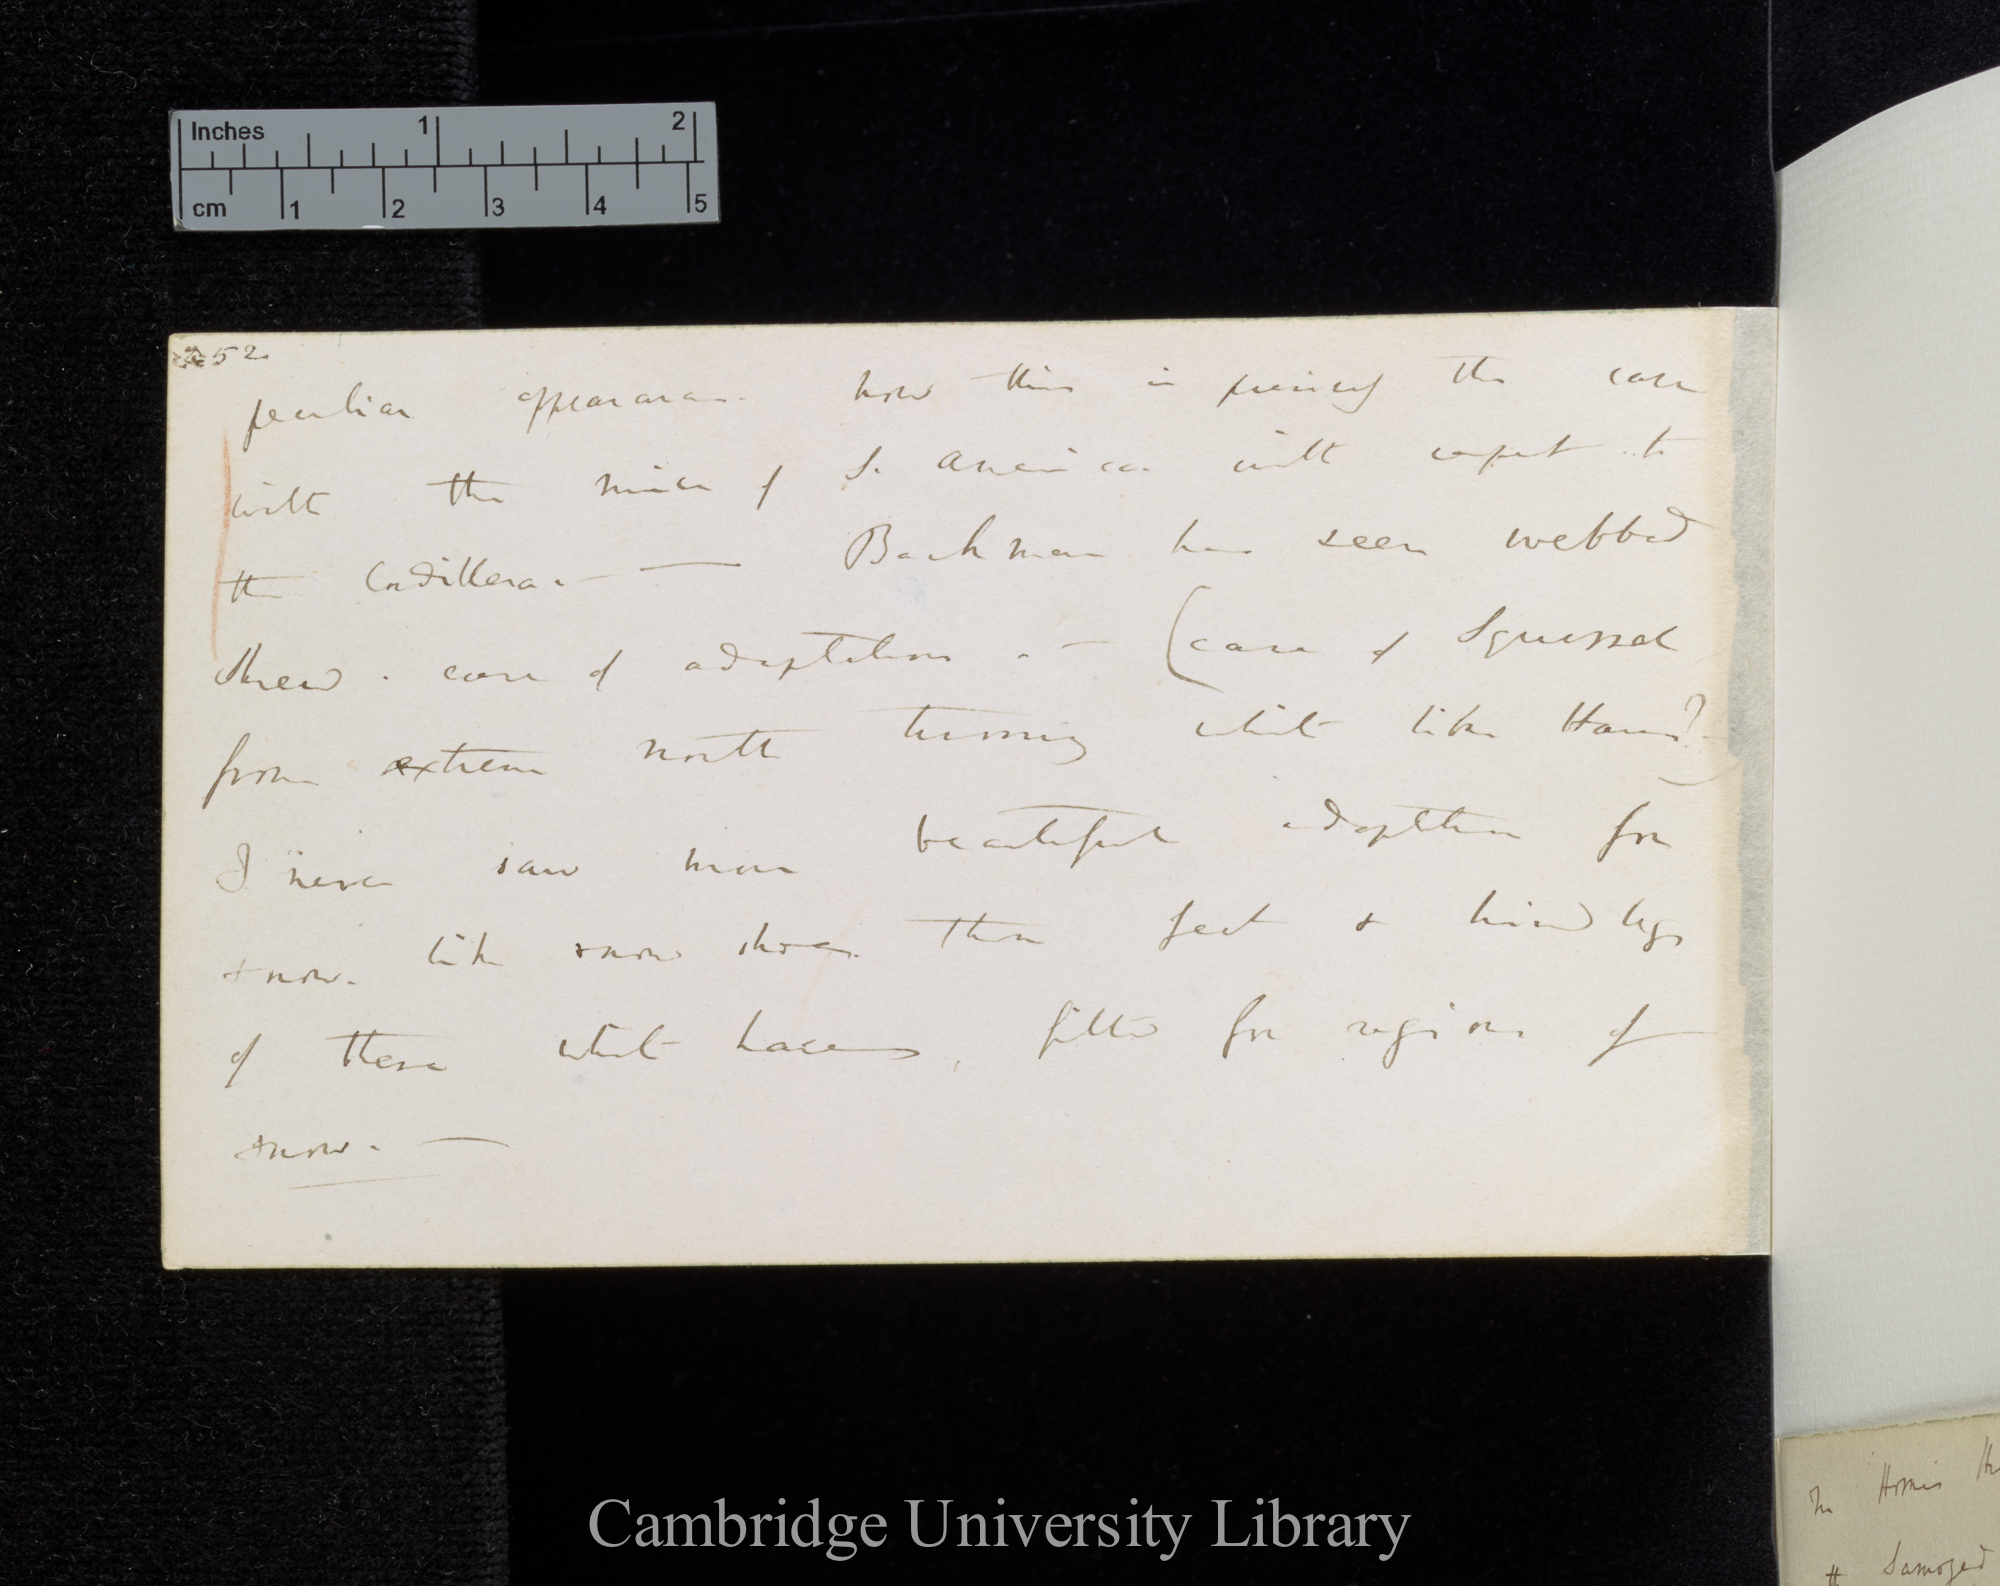 Inches 1 2
cm 1 2 3 4 5
252
peculiar appearance. how this is precisely the case
with the mice of S. America with respect to
the Cordillera. — — Bachman has seen webbed
shrew. case of adaptation. — (case of Squirrel
from extreme north turning white like Hares?)
I never saw more beautiful adaptation for
snow. like snow shoes. than feet & hind legs
of these white hares, fitted for regions of
snow. —
In
the Samoyed
Cambridge University Library